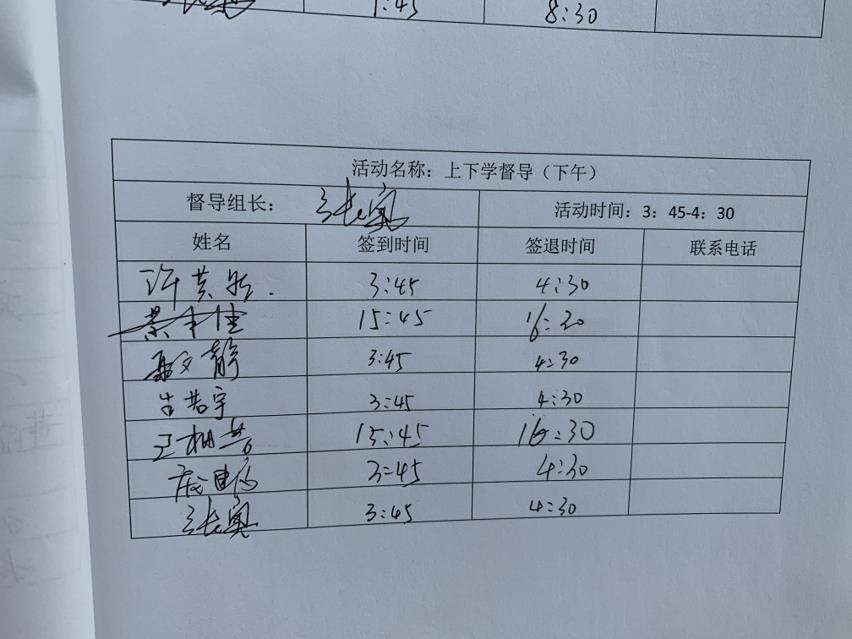 1:45 8:30
活动名称：上下学督导（下午）
督导组长： 张寓 活动时间：3：45-4：30
姓名 签到时间 签退时间 联系电话
3:45 4:30
15:45 16:30
静 3:45 4:30
宇 3:45 4:30
王 15:45 16:30
3:45 4:30
张 3:45 4:30